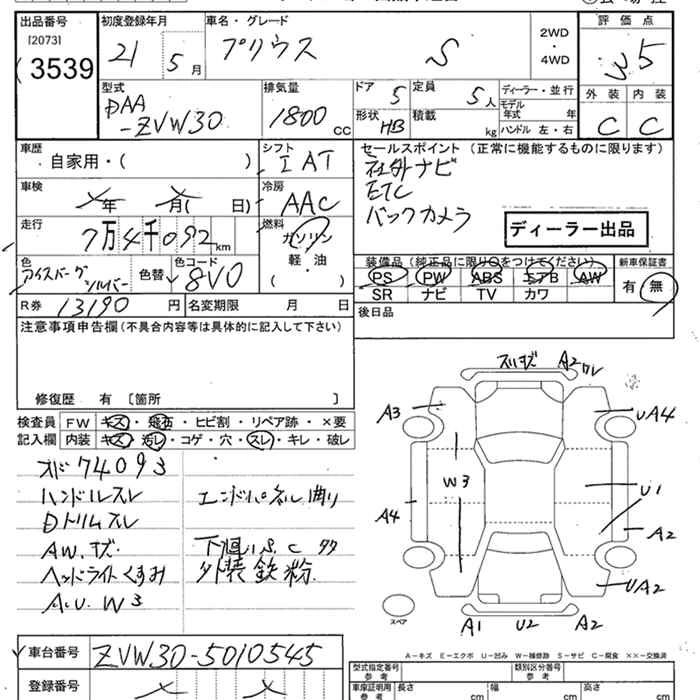 出品番号 初度登録年月 車名・グレード 評価点
[2073] 21 5月 プリウス S 2WD・4WD 3.5
3539
外装 内装
型式 排気量 ドア 5 定員 5人 ディーラー・並行
DAA 形状 HB 積載 kg モデル年式 年 C C
-ZVW30 1800cc ハンドル 左・右
車歴 自家用・( ) シフト IAT セールスポイント (正常に機能するものに限ります)
社外ナビ
車検 年 月( 日) 冷房 AAC ETC
バックカメラ
走行 7万4千092km 燃料 ガソリン ディーラー出品
軽・油
色 アイスバーグシルバー 色替 色コード 8V0 ( )
装備品 (純正品に限り○をつけてください) 新車保証書
PS PW ABS エアB AW 有 無
SR ナビ TV カワ
R券 13190円 名変期限 月 日 後日品
注意事項申告欄(不具合内容等は具体的に記入して下さい)
修復歴 有 [箇所 ]
検査員 FW キズ・飛石・ヒビ割・リペア跡・×要
記入欄 内装 キズ・汚レ・コゲ・穴・スレ・キレ・破レ
74093
ハンドルスレ エンドパネル曲り
Dトリムスレ
AW.キズ. 下廻りS.C
ヘッドライトくすみ 外装鉄粉.
A.U.W3
A2
A3 UA4
W3
U1
A4 A2
UA2
スペア
A1 U2 A2
A-キズ E-エクボ U-凹み W-補修跡 S-サビ C-腐食 ××-交換済
車台番号 ZVW30-5010545
登録番号
型式指定番号 参考 類別区分番号 参考
車庫証明用 参考 長さ cm 幅 cm 高さ cm